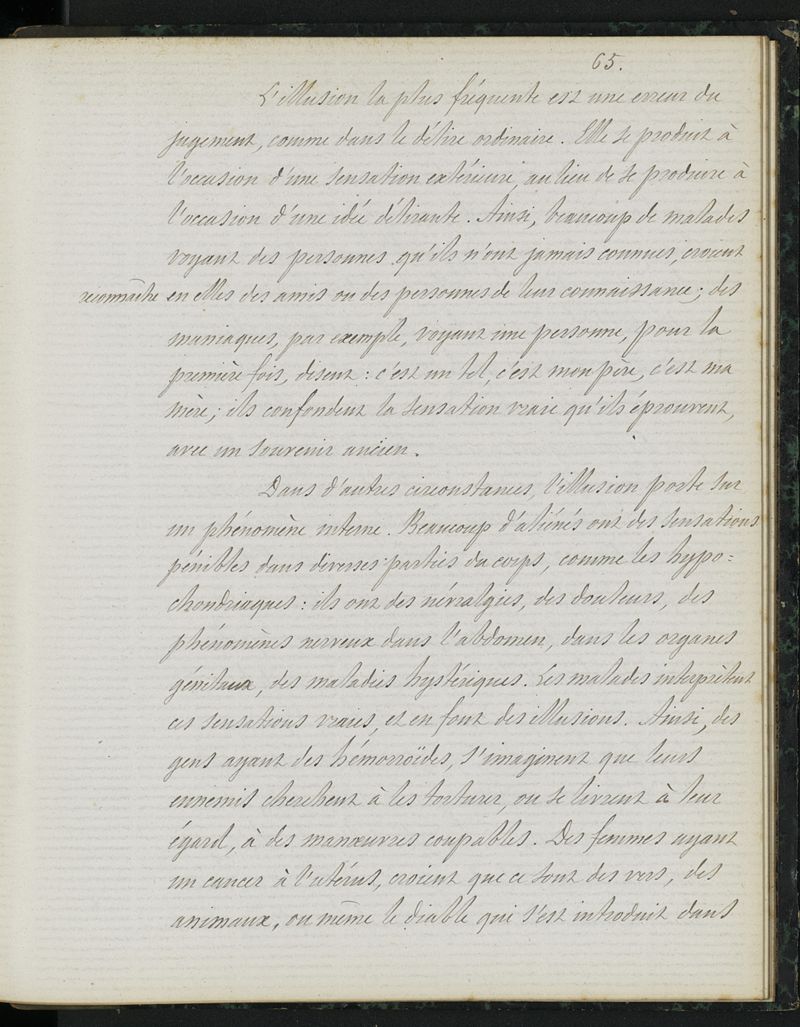 65.
L'illusion la plus fréquente est une erreur du
jugement, comme dans le délire ordinaire. Elle se produit à
l'occasion d'une sensation extérieure, au lieu de se produire à
l'occasion d'une idée délirante. Ainsi, beaucoup de malades
voyant des personnes qu'ils n'ont jamais connues, croient
reconnaître en elles des amis ou des personnes de leur connaissance; des
maniaques, par exemple, voyant une personne, pour la
première fois, disent : c'est un tel, c'est mon père, c'est ma
mère; ils confondent la sensation vraie qu'ils éprouvent,
avec un souvenir ancien.
Dans d'autres circonstances, l'illusion porte sur
un phénomène interne. Beaucoup d'aliénés ont des sensations
pénibles dans diverses parties du corps, comme les hypo=
chondriaques : ils ont des névralgies, des douleurs, des
phénomènes nerveux dans l'abdomen, dans les organes
génitaux, des maladies hystériques. Les malades interprètent
ces sensations vraies, et en font des illusions. Ainsi, des
gens ayant des hémorroïdes, s'imaginent que leurs
ennemis cherchent à les torturer, ou se livrent à leur
égard, à des manœuvres coupables. Des femmes ayant
un cancer à l'utérus, croient que ce sont des vers, des
animaux, ou même le diable qui s'est introduit dans